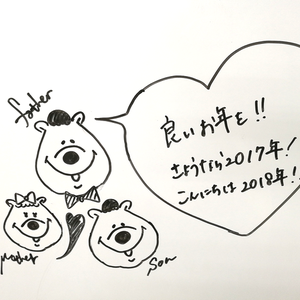 father
良いお年を!!
さようなら2017年!
こんにちは2018年!!
mother
son